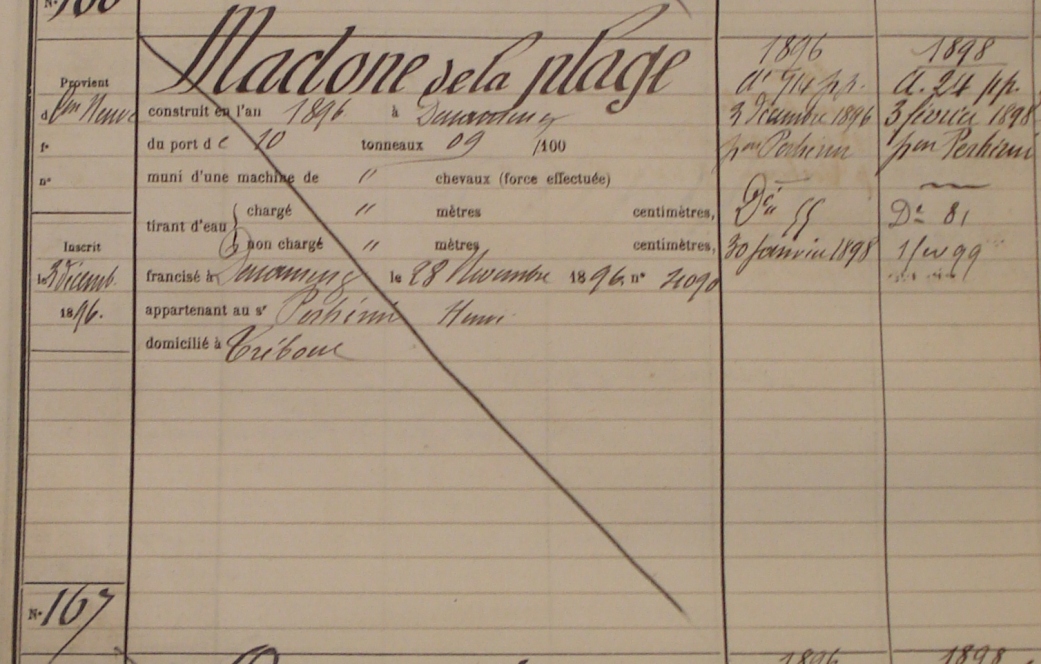 N° 166
Madone de la plage
Provient
construit en l'an 1896 à Douarnenez
f°
du port de 10 tonneaux 09 /100
n°
muni d'une machine de " chevaux (force effectuée)
tirant d'eau { chargé " mètres centimètres,
non chargé " mètres centimètres,
Inscrit
le 3 décemb.
1896.
francisé à Douarnenez le 28 Novembre 1896. n°
appartenant au sr Perhirin Henri
domicilié à Tréboul
1896
3 décembre 1896
Perhirin
30 Janvier 1898
1898
A. 24 pp.
3 février 1898
Perhirin
D° 81
N° 167
1896
1898